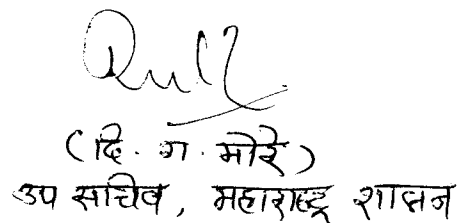 (दि. ग. मोरे)
उप सचिव, महाराष्ट्र शासन